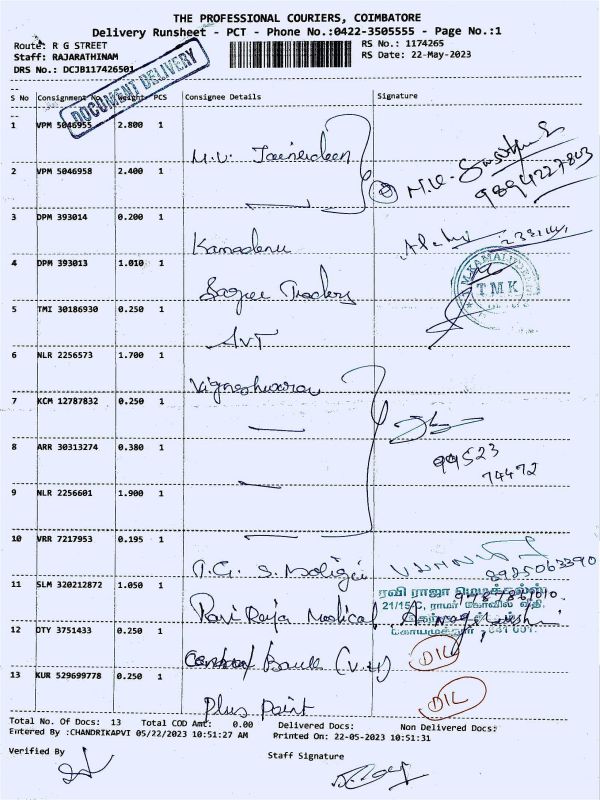 THE PROFESSIONAL COURIERS, COIMBATORE
Delivery Runsheet - PCT - Phone No.:0422-3505555 - Page No.:1
Route: R G STREET
RS No.: 1174265
Staff: RAJARATHINAM
RS Date: 22-May-2023
DRS No.: DCJB117426501
DOCUMENT DELIVERY
S No Consignment No Weight PCS Consignee Details Signature
1 VPM 5046955 2.800 1
M.V.
2 VPM 5046958 2.400 1
M.V.
9894227803
3 DPM 393014 0.200 1
Kamadenu
4 DPM 393013 1.010 1
Traders
T M K
5 TMI 30186930 0.250 1
AVT
6 NLR 2256573 1.700 1
Vigneshwara
7 KCM 12787832 0.250 1
8 ARR 30313274 0.380 1
99523
74472
9 NLR 2256601 1.900 1
10 VRR 7217953 0.195 1
P.G. S. Maligai
8925063390
11 SLM 320212872 1.050 1
ரவி ராஜா மெடிக்கல்ஸ்
21/15 C, ராமர் கோவில் வீதி,
Ravi Raja Medical
கோயமுத்தூர் - 641 001.
12 DTY 3751433 0.250 1
Bank (V.H)
D/L
13 KUR 529699778 0.250 1
Plus Point
D/L
Total No. Of Docs: 13 Total COD Amt: 0.00 Delivered Docs: Non Delivered Docs:
Entered By :CHANDRIKAPVI 05/22/2023 10:51:27 AM Printed On: 22-05-2023 10:51:31
Verified By
Staff Signature